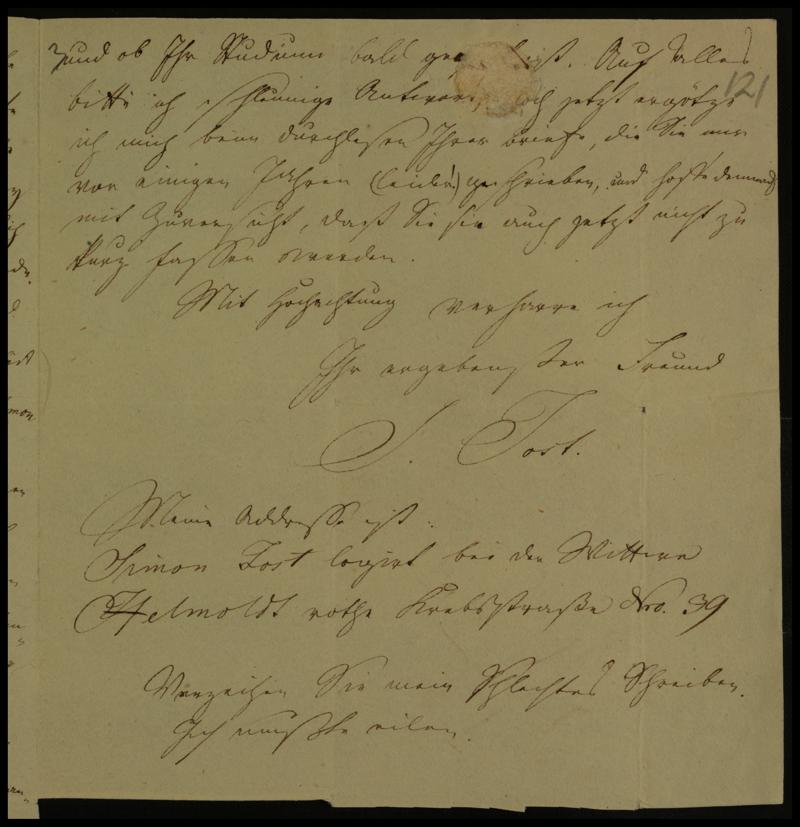 und ob Ihr Studium bald ist. Auf alles
121
bitte ich schleunige Antwort, noch jetzt ergötze
ich mich beim durchlesen Ihrer briefe, die Sie mir
vor einigen Jahren (leider!) geschrieben, und hoffe demnach
mit Zuversicht, daß Sie sie auch jetzt nicht zu
kurz fassen werden.
Mit Hochachtung verharre ich
Ihr ergebenster Freund
S. Jost.
Meine Addresse ist:
Simon Jost logirt bei der Wittwe
Helmoldt rothe Krebsstraße No. 39
Verzeihen Sie mein schlechtes Schreiben.
Ich mußte eilen.